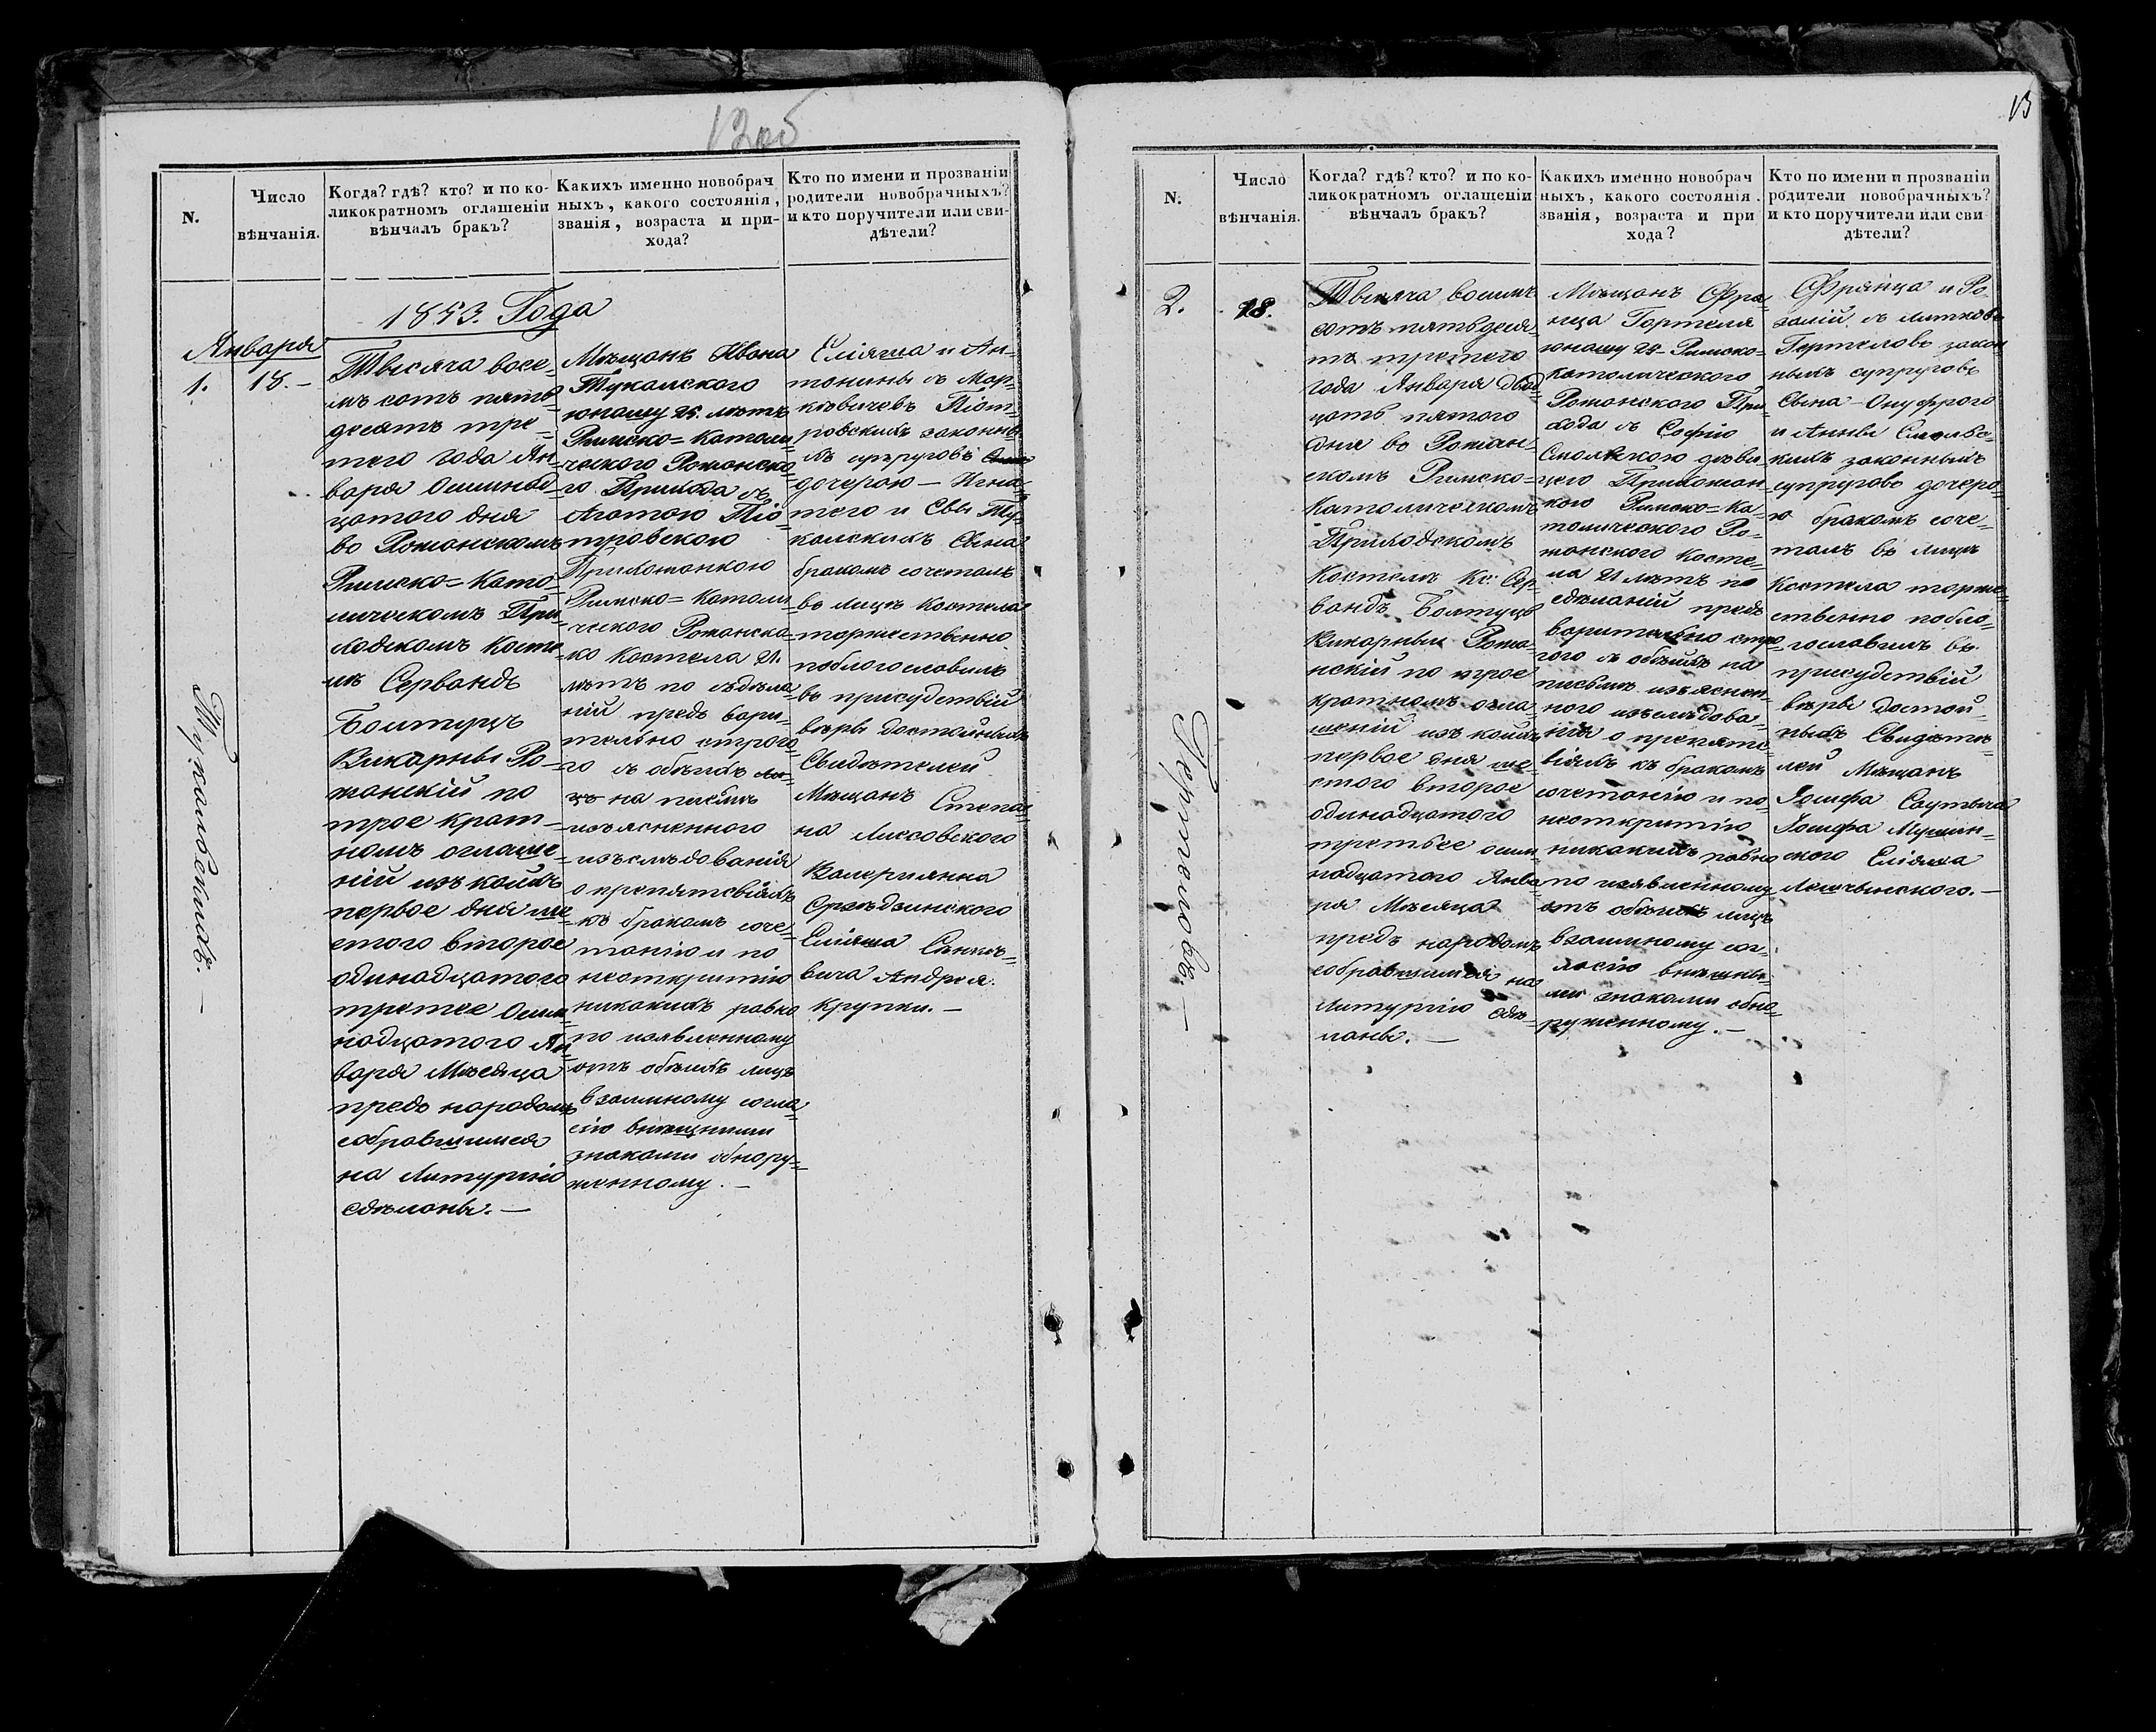 12об
N.
Число
вѣнчанія.
Когда? гдѣ? кто? и по ко-
ликократномъ оглашеніи
вѣнчалъ бракъ?
Какихъ именно новобрач
ныхъ, какого состоянія,
званія, возраста и при-
хода?
Кто по имени и прозваніи
родители новобрачныхъ?
и кто поручители или сви-
дѣтели?
1853. Года
Января
1.
18.-
Тукальскихъ. -
Тысяча восе-
мъ сотъ пять-
десятъ тре-
тего года Ян-
варя Осминад-
цатого дня
во Рожанскомъ
Римско=Като-
лическомъ При-
ходскомъ Косте-
лѣ Сервандъ
Болтуць
Викарный Ро-
жанскій по
трое крат-
номъ оглаше-
ній изъ коихъ
первое дня ше-
стого второе
одинадцатого
третее Осми-
надцатого Ян-
варя Мѣсяца
предъ народомъ
собравшимся
на Литургію
сдѣланы. -
Мѣщанъ Ивана
Тукалского
юношу 25. лѣтъ
Римско=Католи-
ческого Рожанско-
го Прихода съ
Агатою Піо-
тровскою
Прихожанкою
Римско=Католи-
ческого Рожанска-
го Костела 21.
лѣтъ по сдѣла-
ній предъ вари-
тельно строго-
го съ обѣихъ ли-
цъ на письмѣ
изъясненного
изъслѣдованія
о препятсвіяхъ
къ бракомъ соче-
танію и по
неоткритію
никакихъ равно
по изявленному
отъ обѣихъ лицъ
взаимному согла-
сію внѣшними
знаками обнору-
женному. -
Еліяша и Ан-
тонины съ Мор-
кѣвичевъ Піот-
ровскихъ законны-
хъ супруговъ
дочерою - Игна-
тего и Евы Ту-
калскихъ Сына
бракомъ сочеталъ
въ лицѣ Костела
торжественно
поблогословилъ
въ присудствій
вѣры достойныхъ
Свидѣтелей
Мѣщанъ Степа-
на Лиссовского
Валеріянна
Еліяша
вича Андрея
Крупки. -
13
N.
Число
вѣнчанія.
Когда? гдѣ? кто? и по ко-
ликократномъ оглашеніи
вѣнчалъ бракъ?
Какихъ именно новобрач
ныхъ, какого состоянія.
званія, возраста и при
хода?
Кто по имени и прозваніи
родители новобрачныхъ?
и кто поручители или сви-
дѣтели?
2.
18.
Гертеловъ. -
Тысяча восимъ
сотъ пятьдеся-
тъ третего
года Января двад-
цать пятого
дня во Рожан-
скомъ Римско=
Католическомъ
Приходскомъ
Костелѣ Кс: Сер-
вандъ Болтуць
Викарный Рожа-
нскій по трое
кратномъ огла-
шеній изъ коихъ
первое дня ше-
стого второе
одинадцатого
третьее осми-
надцатого Янва-
ря Мѣсяца
предъ народомъ
собравшимся на
Литургію сдѣ-
ланы. -
Мѣщанъ Фра-
нца Гортеля
юношу 24- Римско-
католического
Рожанского При-
хода съ Софію
Смольскою дѣви-
цею Прихожан-
кою Римско=Ка-
толического Ро-
жанского Косте-
ла 21 лѣтъ по
сдѣланій предъ
варительно стро-
гого съ обѣихъ на
письмѣ изъяснен-
ного изъслѣдова-
нія о препятс-
віяхъ къ бракомъ
сочетанію и по
неоткритію
никакихъ равно
по изявленному
отъ обѣихъ лицъ
взаимному сог-
ласію внѣшны-
ми знаками обна-
руженному. -
Францa и Ро-
залій съ
Гертеловъ закон
ныхъ супруговъ
Сына - Онуфрого
и Анны Смольс-
кихъ законныхъ
супруговъ дочеро-
ю бракомъ соче-
талъ въ лицѣ
Костела торже-
ственно побло-
гословилъ въ
присудствій
вѣры достой-
ныхъ Свидѣте-
лей Мѣщанъ
Іосифа
Іосифа
ского Еліяша
Лещинского. -